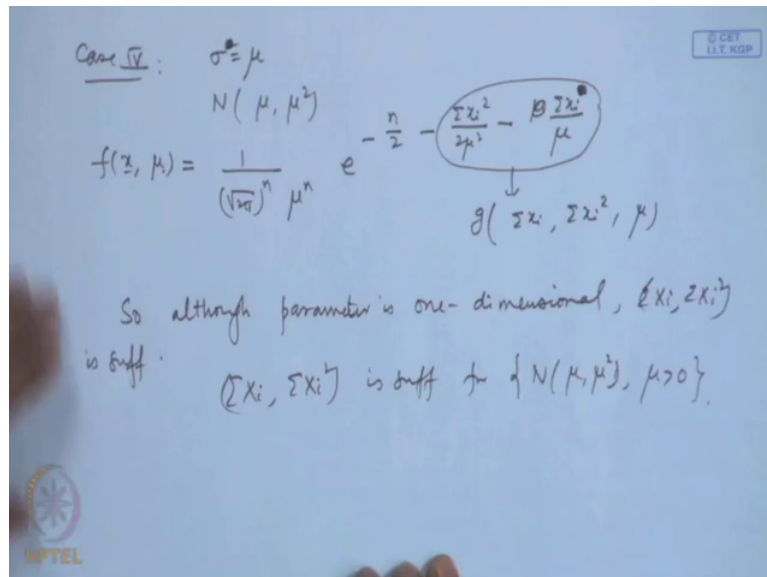 Case IV: σ = μ
© CET
I.I.T. KGP
N( μ, μ²)
f(x, μ) = 1 / (√2π)ⁿ μⁿ e^ - n/2 - Σxi²/2μ² - Σxi/μ
g( Σxi, Σxi², μ)
So although parameter is one-dimensional, (ΣXi, ΣXi²)
is suff.
(ΣXi, ΣXi²) is suff for { N(μ, μ²), μ>0}.
NPTEL